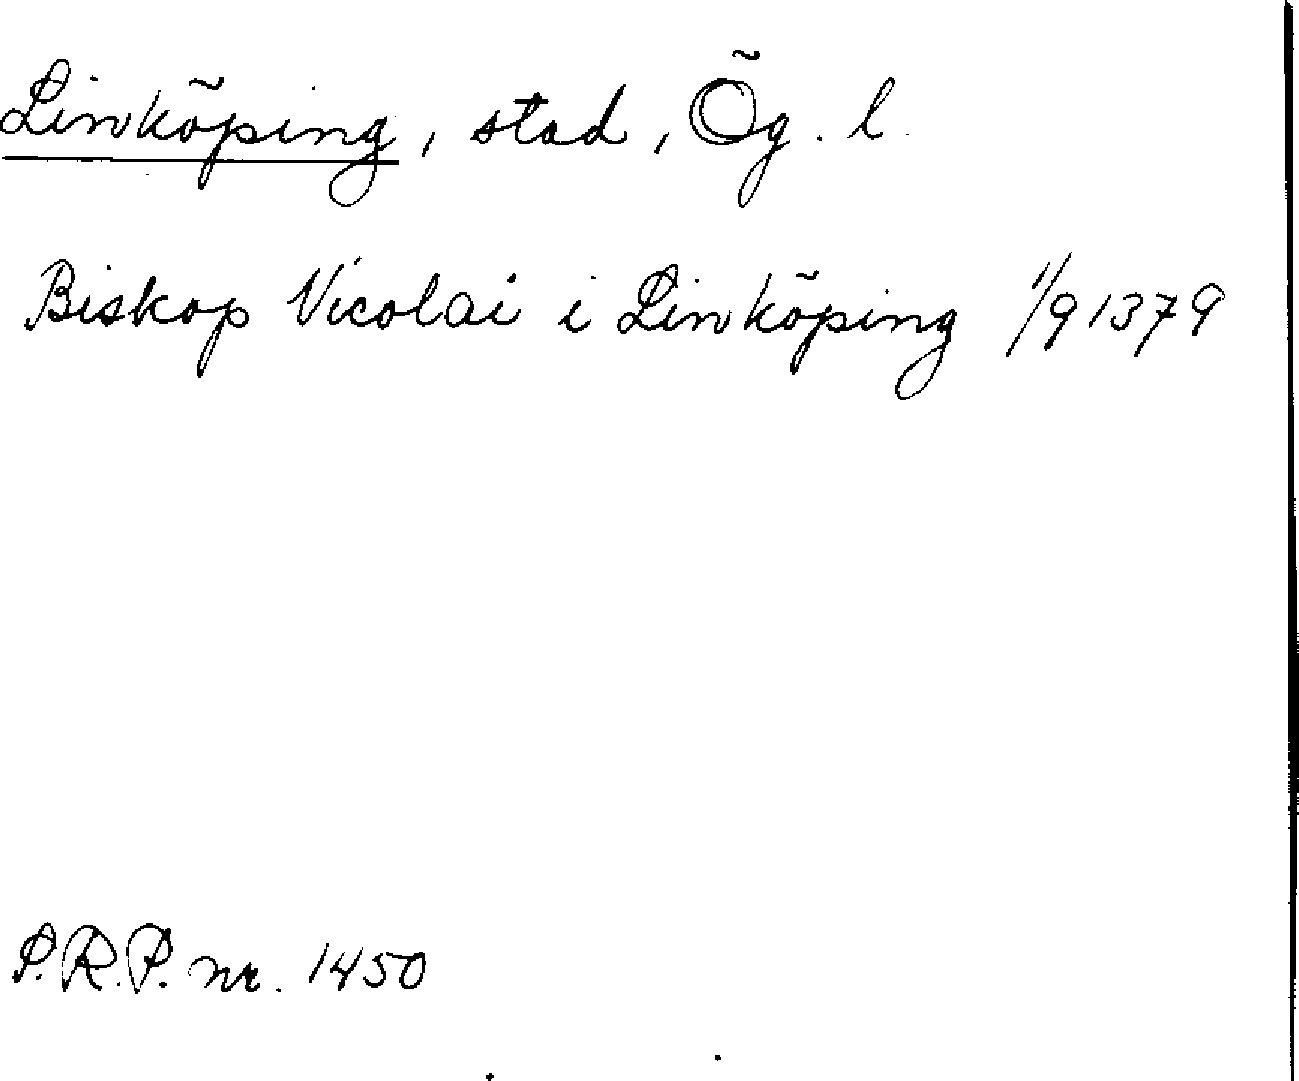 Linköping, stad, Ög. l.
Biskop Nicolai i Linköping 1/9 1379
S.R.P. nr. 1450